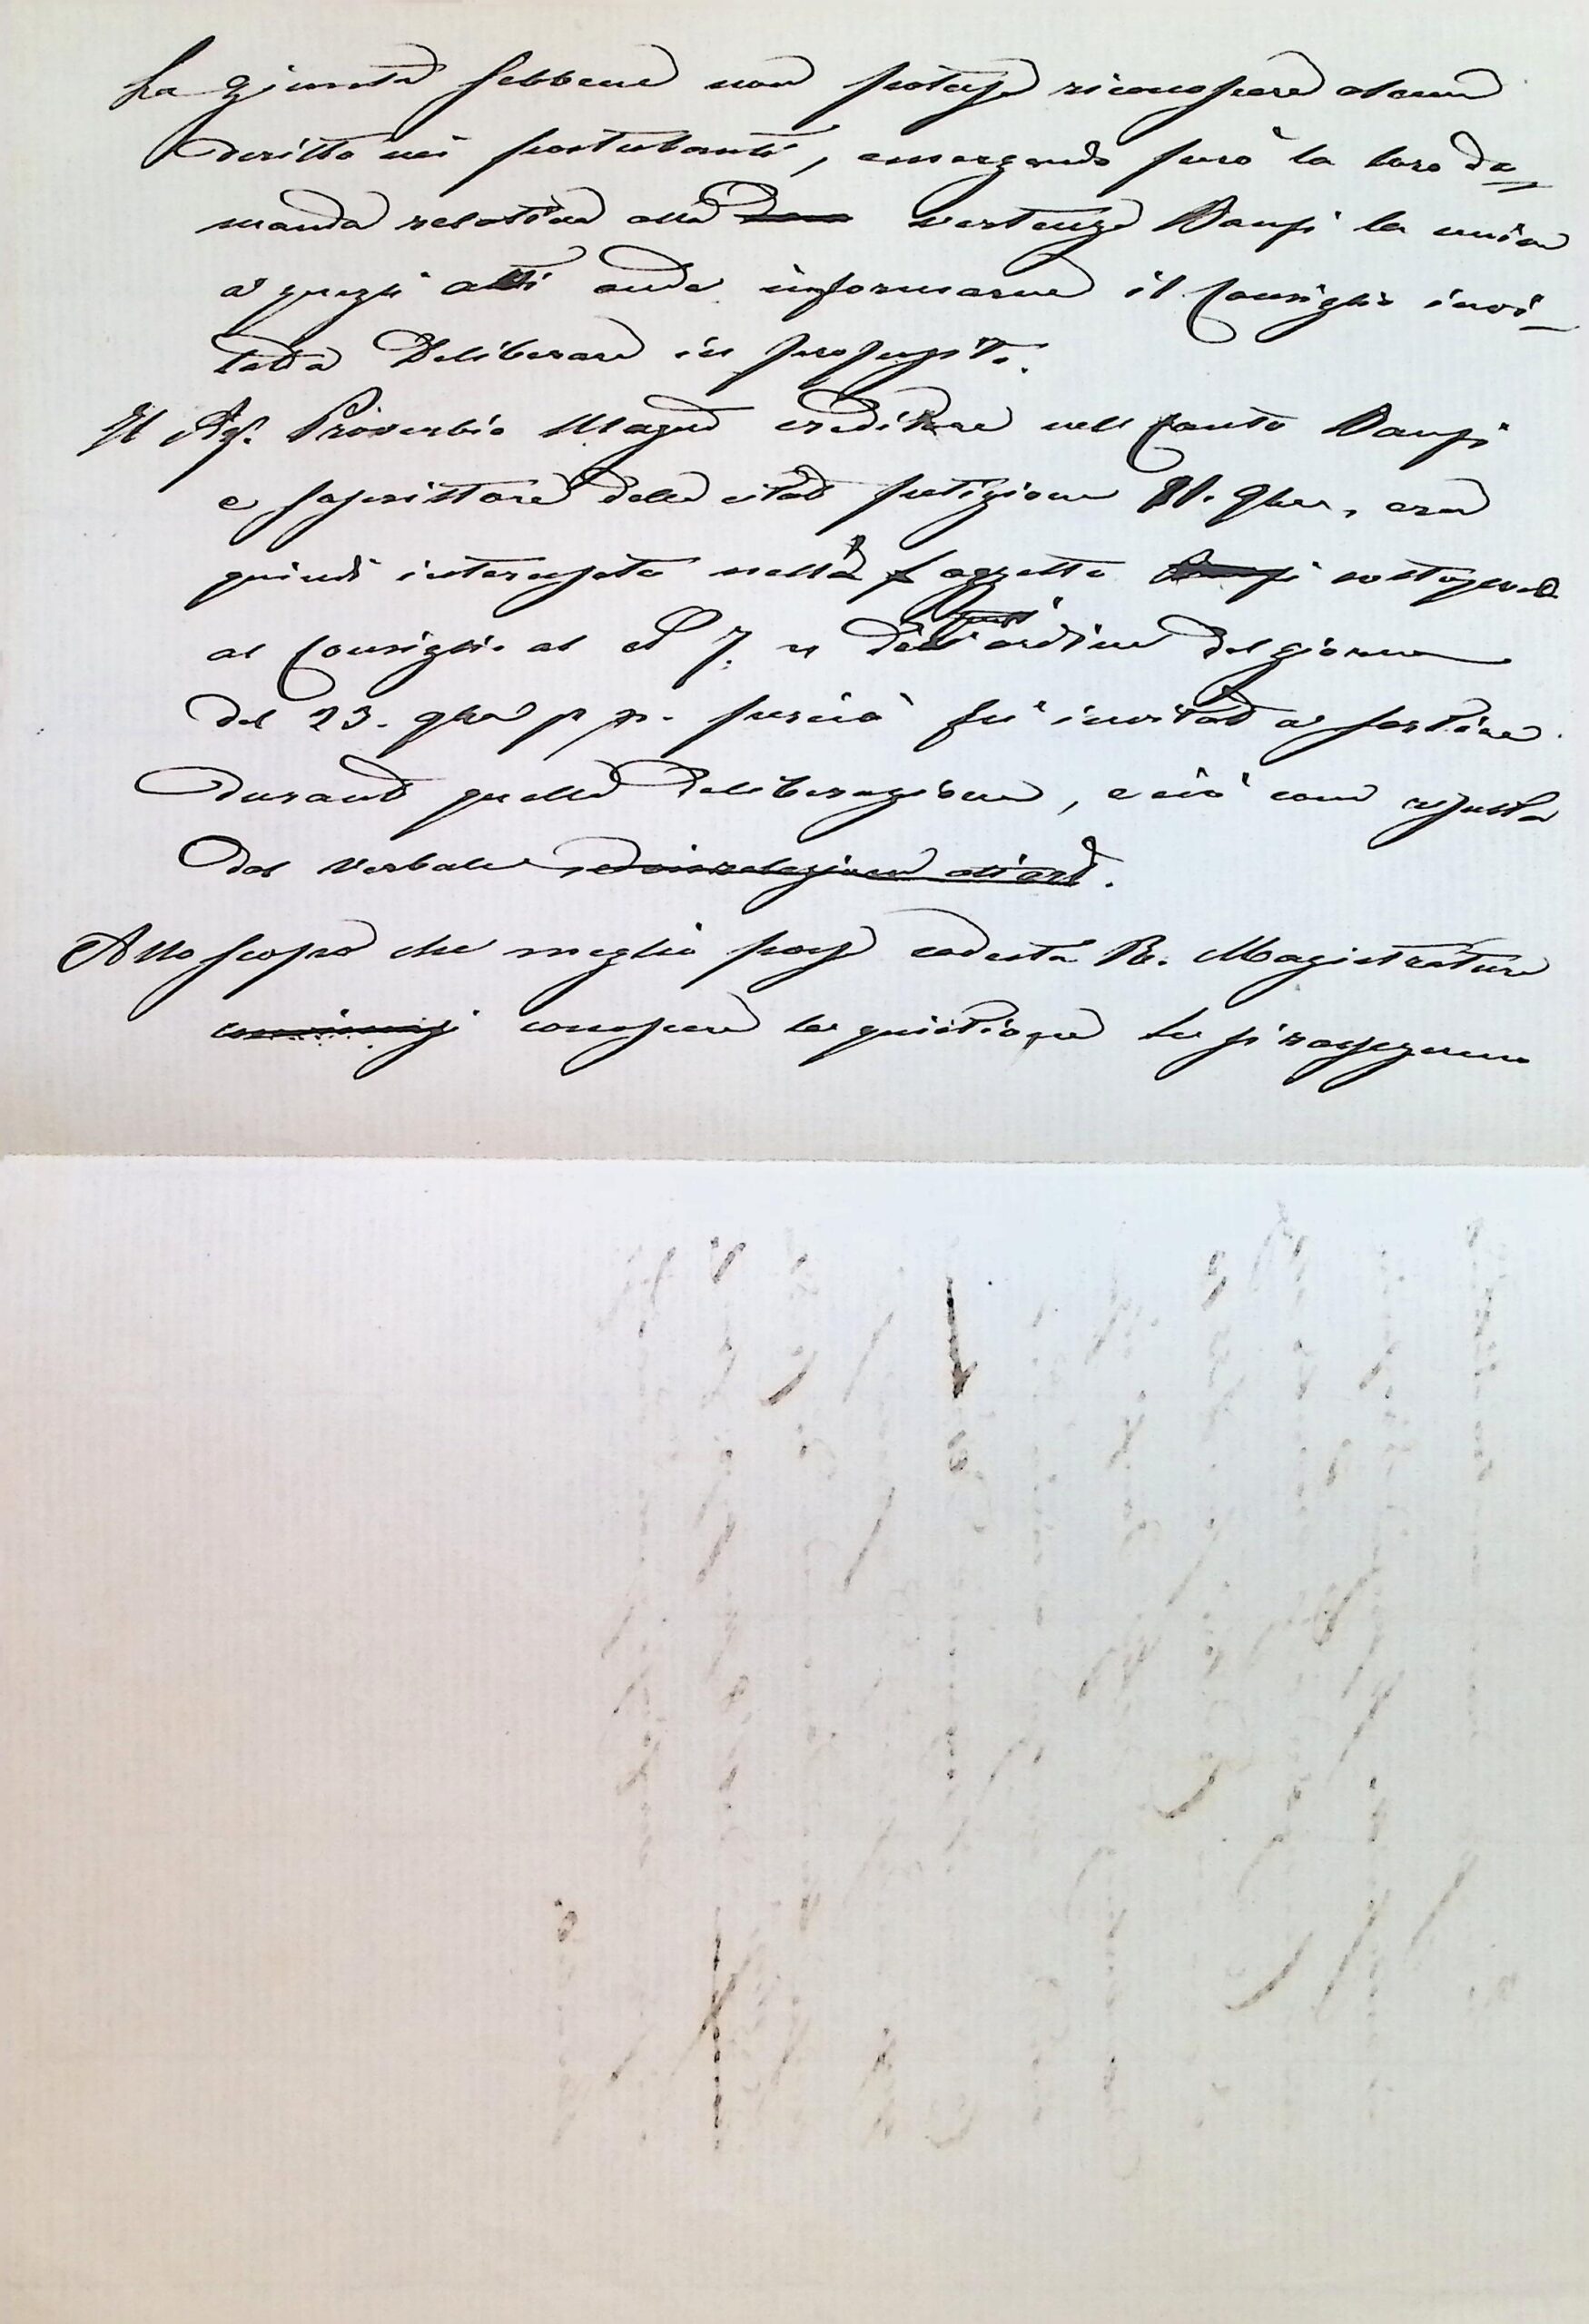 La Giunta sebbene non potesse riconoscere alcun
diritto nei postulanti, emergendo però la loro do-
manda relativa alla vertenza Banfi la univa
a quegli atti onde informarne il Consiglio invi-
tato a deliberare in proposito.
Il Sig. Proverbio Magno creditore nell Banfi
e soscrittore della citata petizione 9bre, era
quindi interessato nell' oggetto sottoposto
al Consiglio al N 7. dell'ordine del giorno
del 23. 9bre p. p. perciò fu invitato a sortire
durante quella deliberazione, e ciò come risulta
dal Verbale
Allo scopo che meglio possa codesta R. Magistratura
conoscere la quistione le si rassegnano